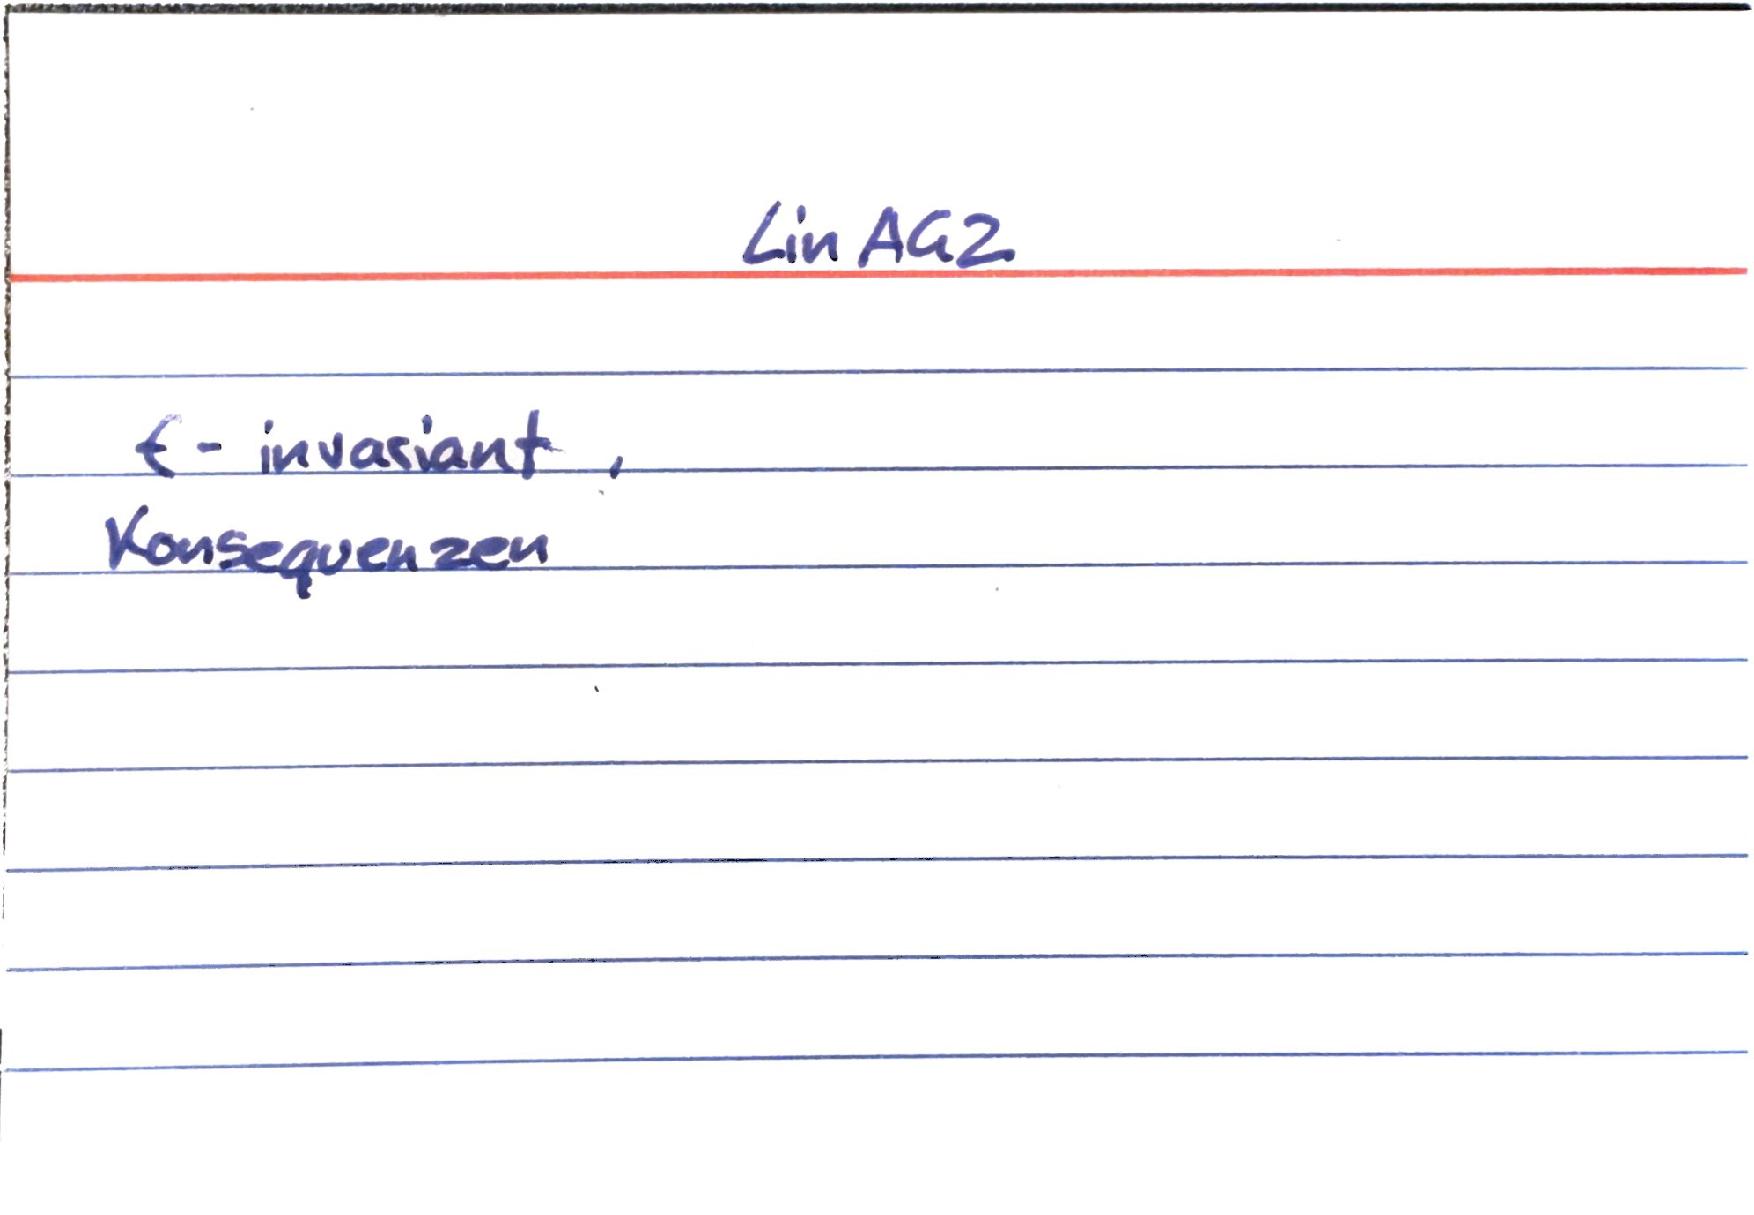 LinAG2
f - invariant,
Konsequenzen